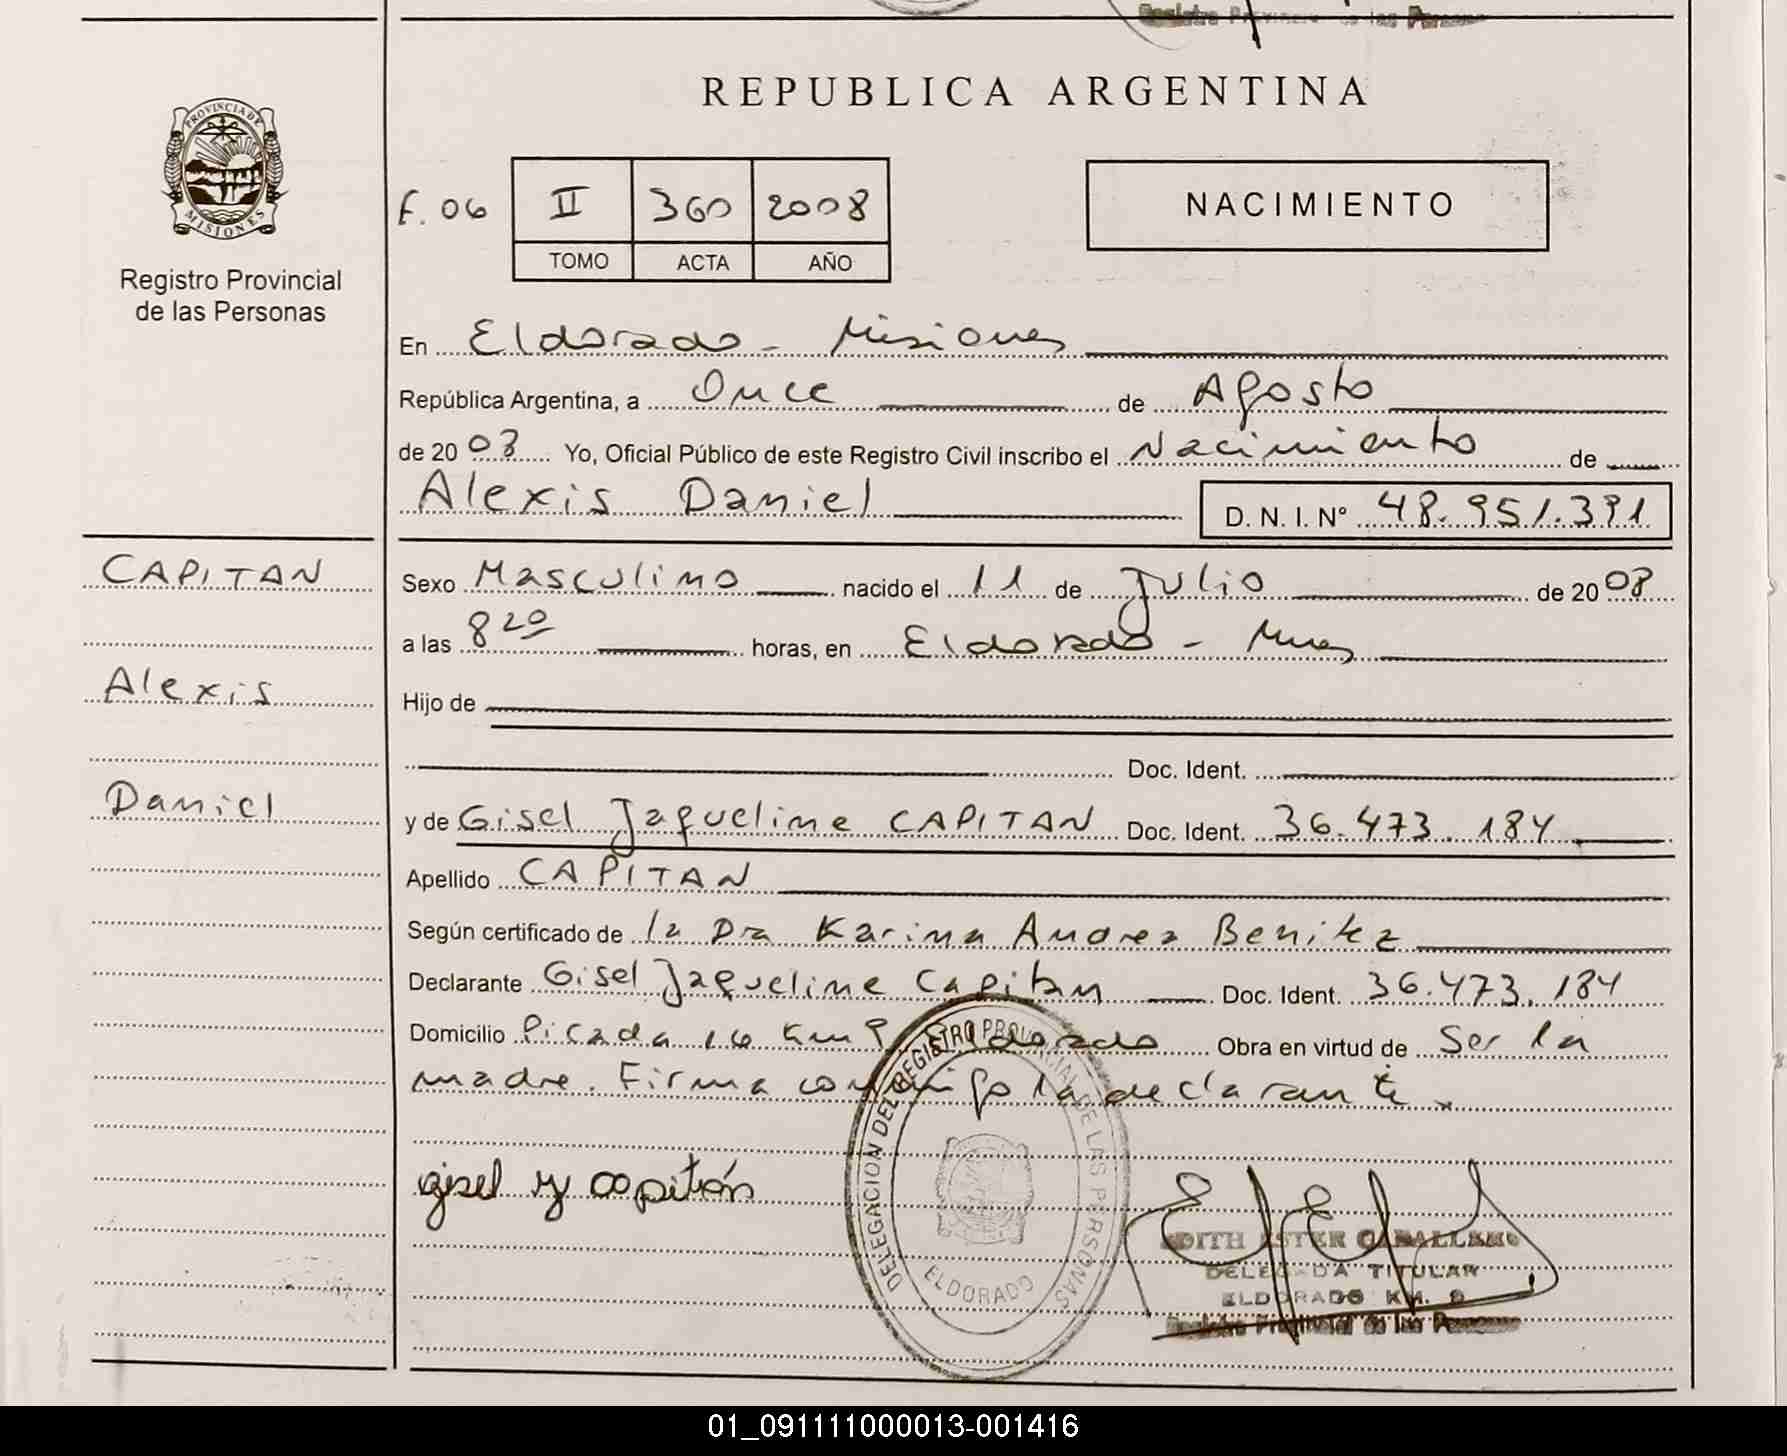 REPUBLICA ARGENTINA
PROVINCIA DE
MISIONES
Registro Provincial
de las Personas
F. 06 II 360 2008
TOMO ACTA AÑO
NACIMIENTO
En Eldorado - Misiones
República Argentina, a Once de Agosto
de 20 08 Yo, Oficial Público de este Registro Civil inscribo el Nacimiento de
Alexis Daniel D. N. I. Nº 48.951.391
CAPITAN
Alexis
Daniel
Sexo Masculino nacido el 11 de Julio de 20 08
a las 8 20 horas, en Eldorado - Mnes
Hijo de
Doc. Ident.
y de Gisel Jaqueline CAPITAN Doc. Ident. 36.473.184
Apellido CAPITAN
Según certificado de la Dra Karina Andrea Benitez
Declarante Gisel Jaqueline Capitan Doc. Ident. 36.473.184
Domicilio Picada 16 Km 9 Eldorado Obra en virtud de Ser la
madre. Firma conmigo la declarante
gisel y capitán
DELEGACION DEL REGISTRO PROVINCIAL DE LAS PERSONAS
ELDORADO
EDITH ESTER CABALLERO
DELEGADA TITULAR
ELDORADO KM. 9
Registro Provincial de las Personas
01_091111000013-001416